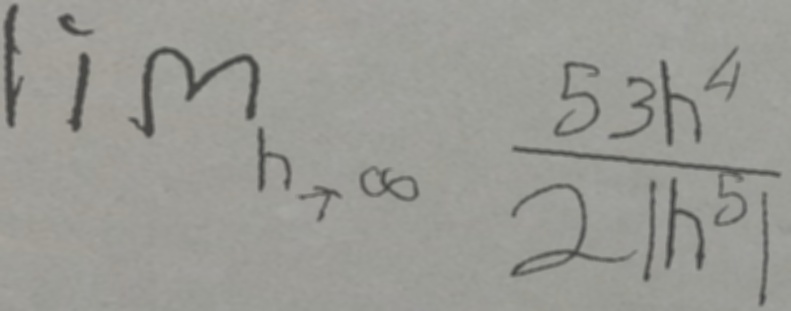 lim_{h→∞} \frac{53h^4}{2|h^5|}